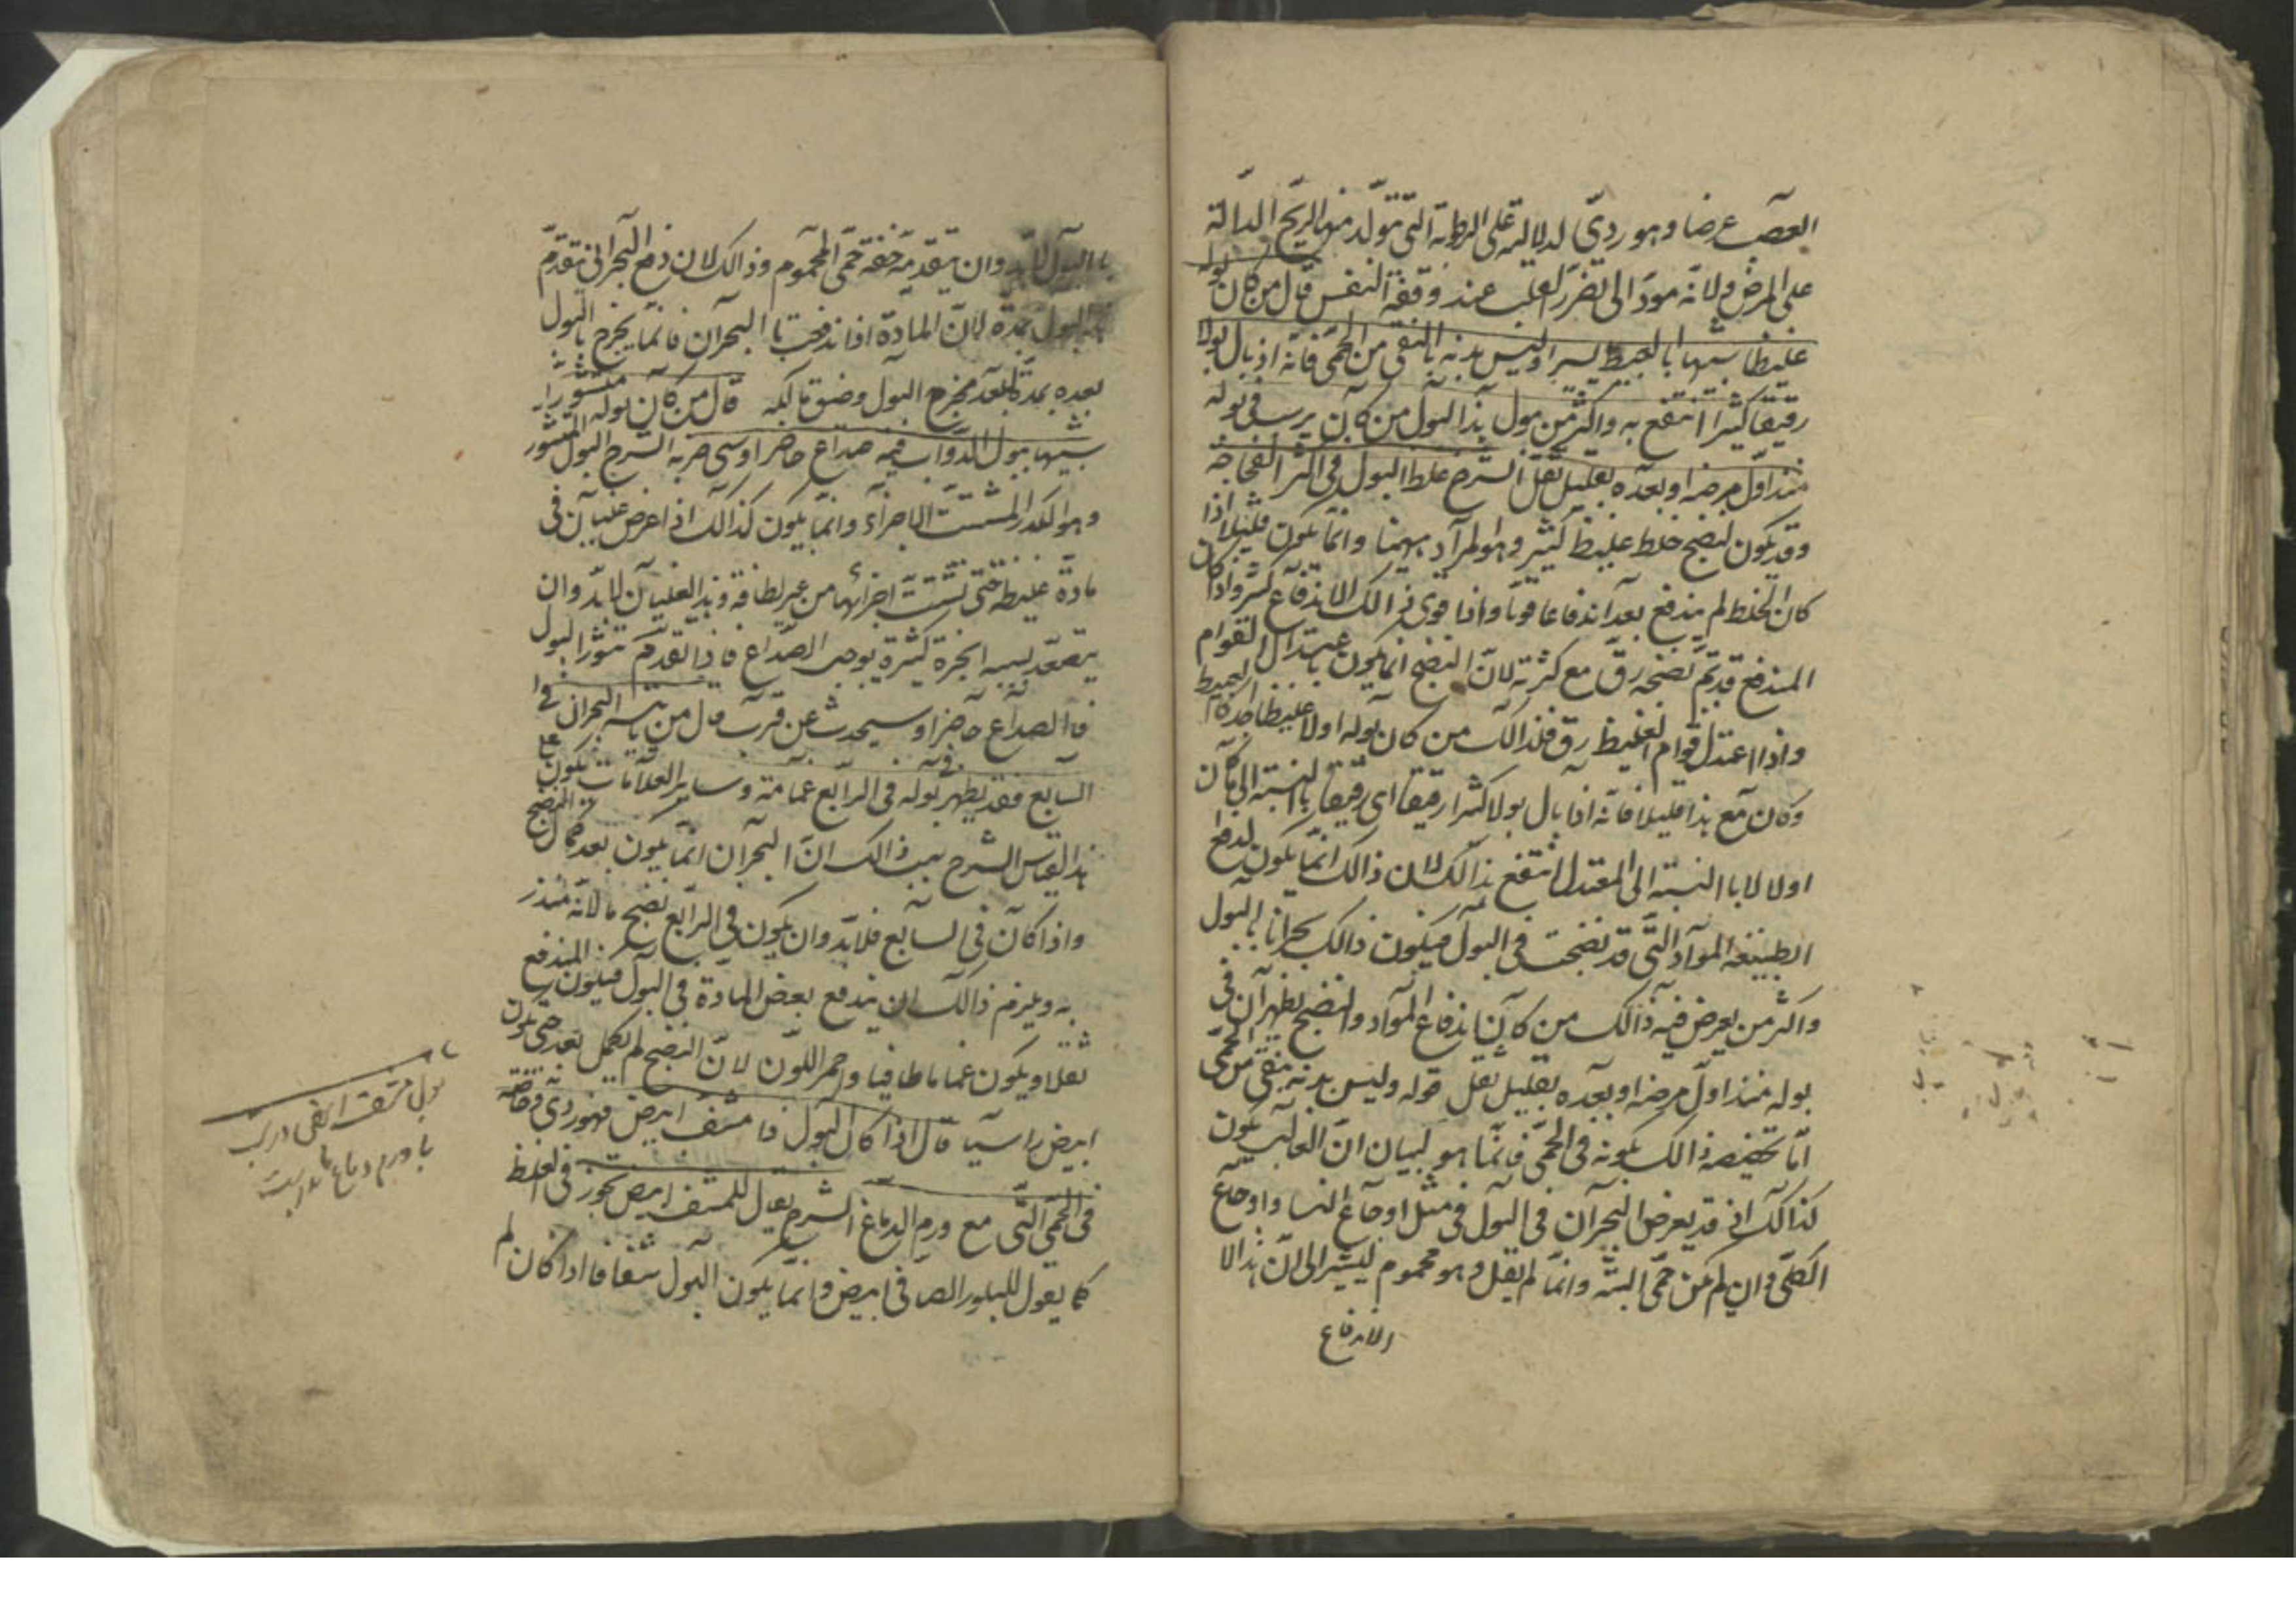 العصب عرضا وهو رديّ لدلالته على الرطوبة التى تتولّد منها الريح الدالة
على المرض ولانّه مودّ الى تضرر القلب عند وقفة النفس قال من كان بوله
غليظا شبيها بالعبيط يسيرا وليس بدنه بالنقى من الحمّى فانّه اذ بال بولا
رقيقا كثيرا انتفع به واكثر من يبول هذا البول من كان يرسب فى بوله
منذ اوّل مرضه او بعده بقليل ثفل الشرح غلظ البول فى اكثر الفجاجة
وقد يكون لنضج خلط غليظ كثير وهو المراد ههنا وانّما يكون قليلا اذا
كان الخلط لم يندفع بعد اندفاعا قويا واذا قوى ذالك الاندفاع كثر واذا كان
المندفع قد تمّ نضجه رقّ مع كثرته لانّ النضج انما يكون باعتدال القوام
واذا اعتدل قوام الغليظ رقّ فلذالك من كان بوله اولا غليظا كالعبيط
وكان مع هذا قليلا فانّه اذا بال بولا كثيرا رقيقا اى رقيقا بالنسبة الى ما كان
اولا لا بالنسبة الى المعتدل انتفع بذالك لان ذالك انّما يكون لدفع
الطبيعة المواد التّى قد نضجت فى البول فيكون ذالك بحرانا بالبول
واكثر من يعرض فيه ذالك من كان اندفاع المواد والنضج يظهران فى
بوله منذ اوّل مرضه او بعده بقليل ثفل قوله وليس بدنه بنقى من الحمّى
امّا تخصيصه ذالك بكونه فى الحمّى فانّما هو لبيان انّ الغالب يكون
كذالك اذ قد يعرض البحران فى البول فى مثل اوجاع النسا واوجاع
الكلى وان لم يكن حمّى البتة وانّما لم يقل وهو محموم ليشير الى انّ هذا الا
الاندفاع
بالبول لابد وان يتقدمه خفة حمّى المحموم وذالك لان دفع البحرانى يتقدّم
البول بمدّة لانّ المادّة اذا اندفعت بالبحران فانّما يخرج بالبول
بعده بمدّة لبعد مخرج البول وضيق مسالكه قال من كان بوله متثورا
شبيها ببول الدواب فبه صداع حاضر او سيحضر به الشرح البول المتثور
وهو الكدر المتشتت الاجزاء وانّما يكون كذالك اذا عرض غليان فى
مادّة غليظة حتى تشتّت اجزائها من غير لطافة وهذا الغليان لابدّ وان
يتصعّد بسببه ابخرة كثيرة يوجب الصداع فاذا تقدّم تثور البول
فالصداع حاضر او سيحدث عن قرب قال من ياتيه البحران فى
السابع فقد يظهر فى بوله فى الرابع غمامة وساير العلامات تكون على
هذا القياس الشرح سبب ذالك انّ البحران انّما يكون بعد كمال النضج
واذا كان فى السابع فلابدّ وان يكون فى الرابع نضج ما لانّه منذر
به ويلزم ذالك ان يندفع بعض المادة فى البول فيكون المندفع
ثفلا ويكون غماما طافيا واحمر اللّون لانّ النضج لم يكمل بعد حتى يكون
ابيض راسبا قال اذا كان البول ذا مشفّ ابيض فهو ردى وخاصة
فى الحمّى التّى مع ورم الدماغ الشرح يقال للمشف ابيض تجوز فى اللفظ
كما يقول للبلور الصافى ابيض وانّما يكون البول شفافا اذا كان لم
با ورم دماغ